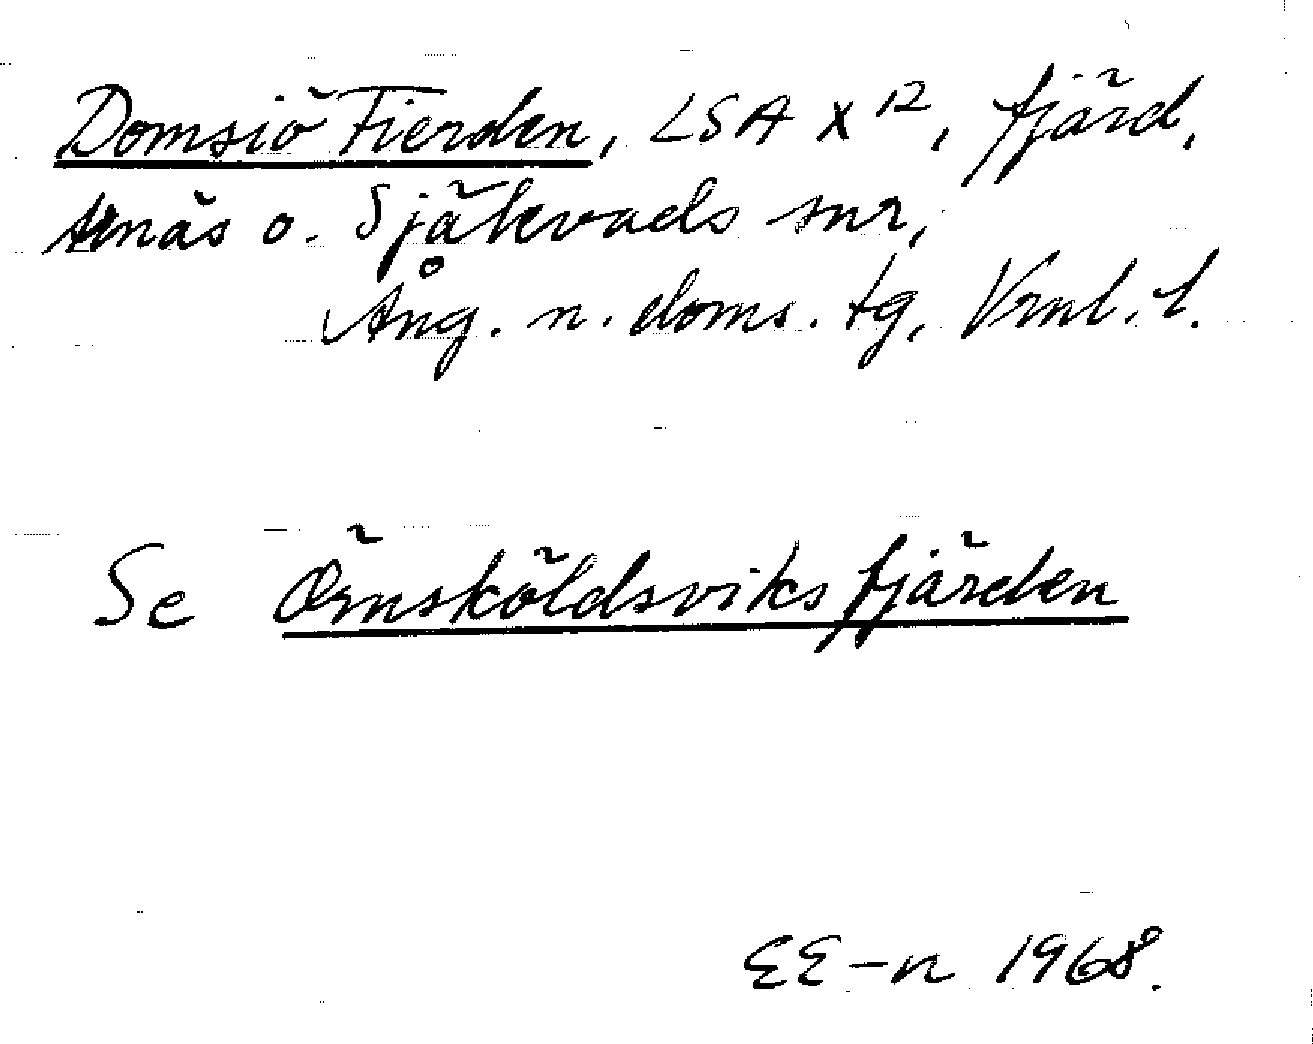 Domsiö Fierden, LSA X 12, fjärd,
Arnäs o. Själevads snr,
Ång. n. doms. tg, Vrnl. l.
Se Örnsköldsviksfjärden
EE-n 1968.